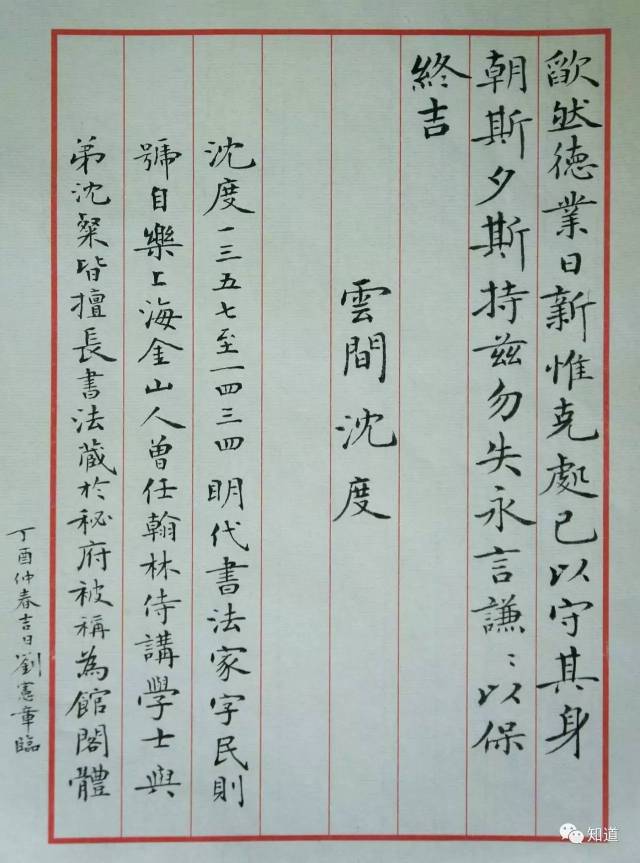 歛然德業日新惟克處已以守其身
朝斯夕斯持兹勿失永言謙〻以保
終吉
雲間沈度
沈度一三五七至一四三四明代書法家字民則
號自樂上海金山人曾任翰林侍講學士與
弟沈粲皆擅長書法藏於秘府被稱為館閣體
丁酉仲春吉日劉憲章臨
知道